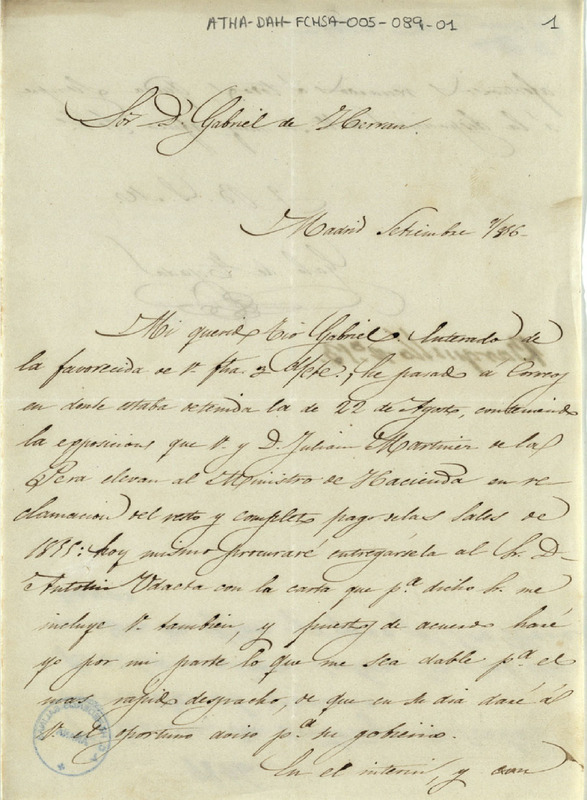 ATHA-DAH-FCHSA-005-089-01
1
Sor. Dn. Gabriel de Herran.
Madrid Setiembre
Mi querido tio Gabriel: Enterado de
la favorecida de V. fha. 3 he pasado a Correos
en donde estaba detenida la de 22 de Agosto, conteniendo
la exposicion que V. y D. Julian Martinez de la
Pera elevan al Ministro de Hacienda en re
clamacion del resto y completo pago de las Sales de
1855: hoy mismo procuraré entregársela al Sr. D.
Antolin Udaeta con la carta que pa. dicho Sr. me
incluye V. tambien, y puestos de acuerdo haré
yo por mi parte lo que me sea dable pa. el
mas rapido despacho, de que en su dia daré á
V. el oportuno aviso pa. su gobierno.
En el interin, y con